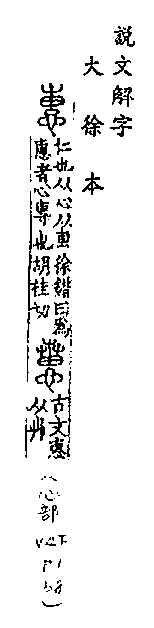 說文解字
大徐本
仁也从心从叀徐鍇曰爲
惠者心專也胡桂切
古文惠
从芔
(心部